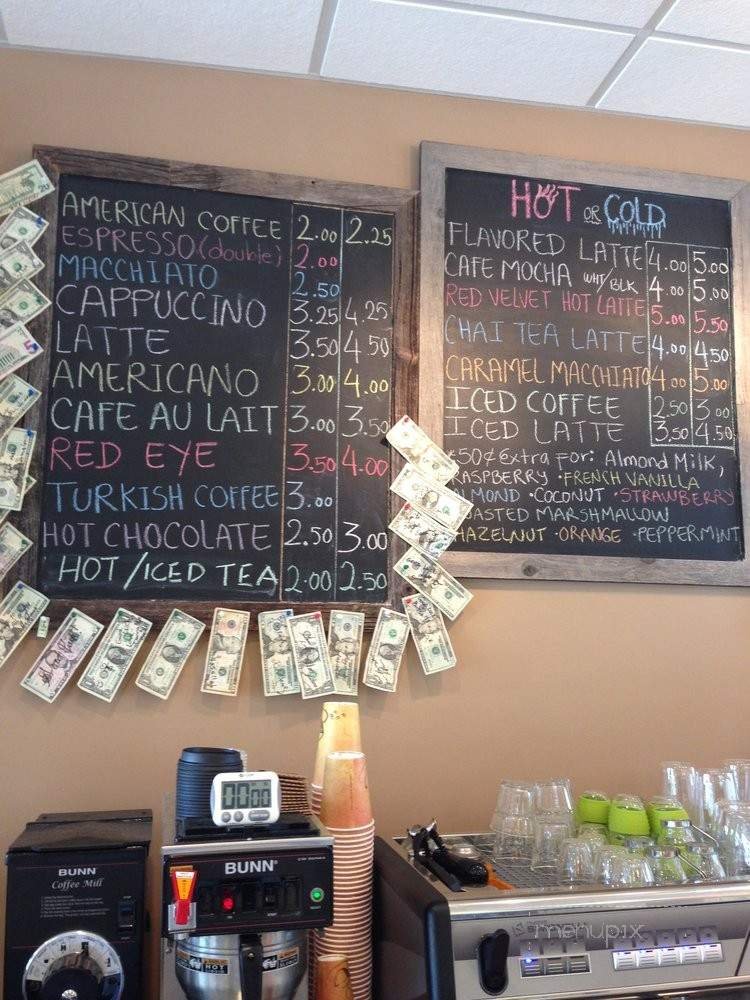 AMERICAN COFFEE 2.00 2.25
ESPRESSO (double) 2.00
MACCHIATO 2.50
CAPPUCCINO 3.25 4.25
LATTE 3.50 4.50
AMERICANO 3.00 4.00
CAFE AU LAIT 3.00 3.50
RED EYE 3.50 4.00
TURKISH COFFEE 3.00
HOT CHOCOLATE 2.50 3.00
HOT/ICED TEA 2.00 2.50
HOT OR COLD
FLAVORED LATTE 4.00 5.00
CAFE MOCHA WHT/BLK 4.00 5.00
RED VELVET HOT LATTE 5.00 5.50
CHAI TEA LATTE 4.00 4.50
CARAMEL MACCHIATO 4.00 5.00
ICED COFFEE 2.50 3.00
ICED LATTE 3.50 4.50
*50¢ extra for: Almond Milk,
RASPBERRY · FRENCH VANILLA
ALMOND · COCONUT · STRAWBERRY
TOASTED MARSHMALLOW
HAZELNUT · ORANGE · PEPPERMINT
BUNN
Coffee Mill
00 00
BUNN
HOT
menupix